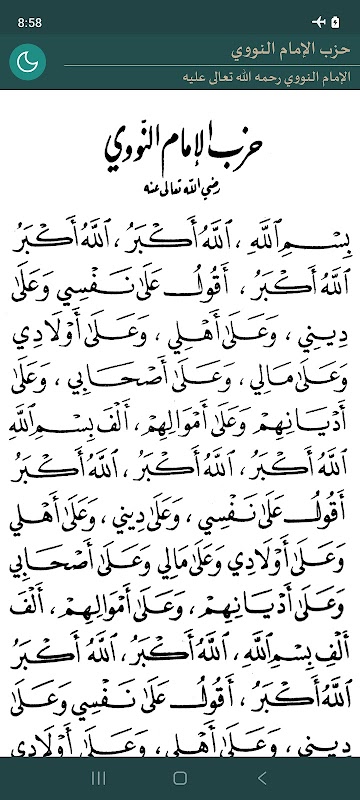 8:58
حزب الإمام النووي
الإمام النووي رحمه الله تعالى عليه
حزب الإمام النّووي
رضي الله تعالى عنه
بِسْمِ اللهِ ، اَللهُ أَكْبَرُ ، اَللهُ أَكْبَرُ
اَللهُ أَكْبَرُ ، أَقُولُ عَلَىٰ نَفْسِي وَعَلَىٰ
دِينِي ، وَعَلَىٰ أَهْلِي ، وَعَلَىٰ أَوْلَادِي
وَعَلَىٰ مَالِي ، وَعَلَىٰ أَصْحَابِي ، وَعَلَىٰ
أَدْيَانِهِمْ وَعَلَىٰ أَمْوَالِهِمْ ، أَلْفَ بِسْمِ اللهِ
اَللهُ أَكْبَرُ ، اَللهُ أَكْبَرُ ، اَللهُ أَكْبَرُ
أَقُولُ عَلَىٰ نَفْسِي ، وَعَلَىٰ دِينِي ، وَعَلَىٰ أَهْلِي
وَعَلَىٰ أَوْلَادِي وَعَلَىٰ مَالِي وَعَلَىٰ أَصْحَابِي
وَعَلَىٰ أَدْيَانِهِمْ ، وَعَلَىٰ أَمْوَالِهِمْ ، أَلْفَ
أَلْفِ بِسْمِ اللهِ ، اَللهُ أَكْبَرُ ، اَللهُ أَكْبَرُ
اَللهُ أَكْبَرُ ، أَقُولُ عَلَىٰ نَفْسِي وَعَلَىٰ
دِينِي ، وَعَلَىٰ أَهْلِي ، وَعَلَىٰ أَوْلَادِي